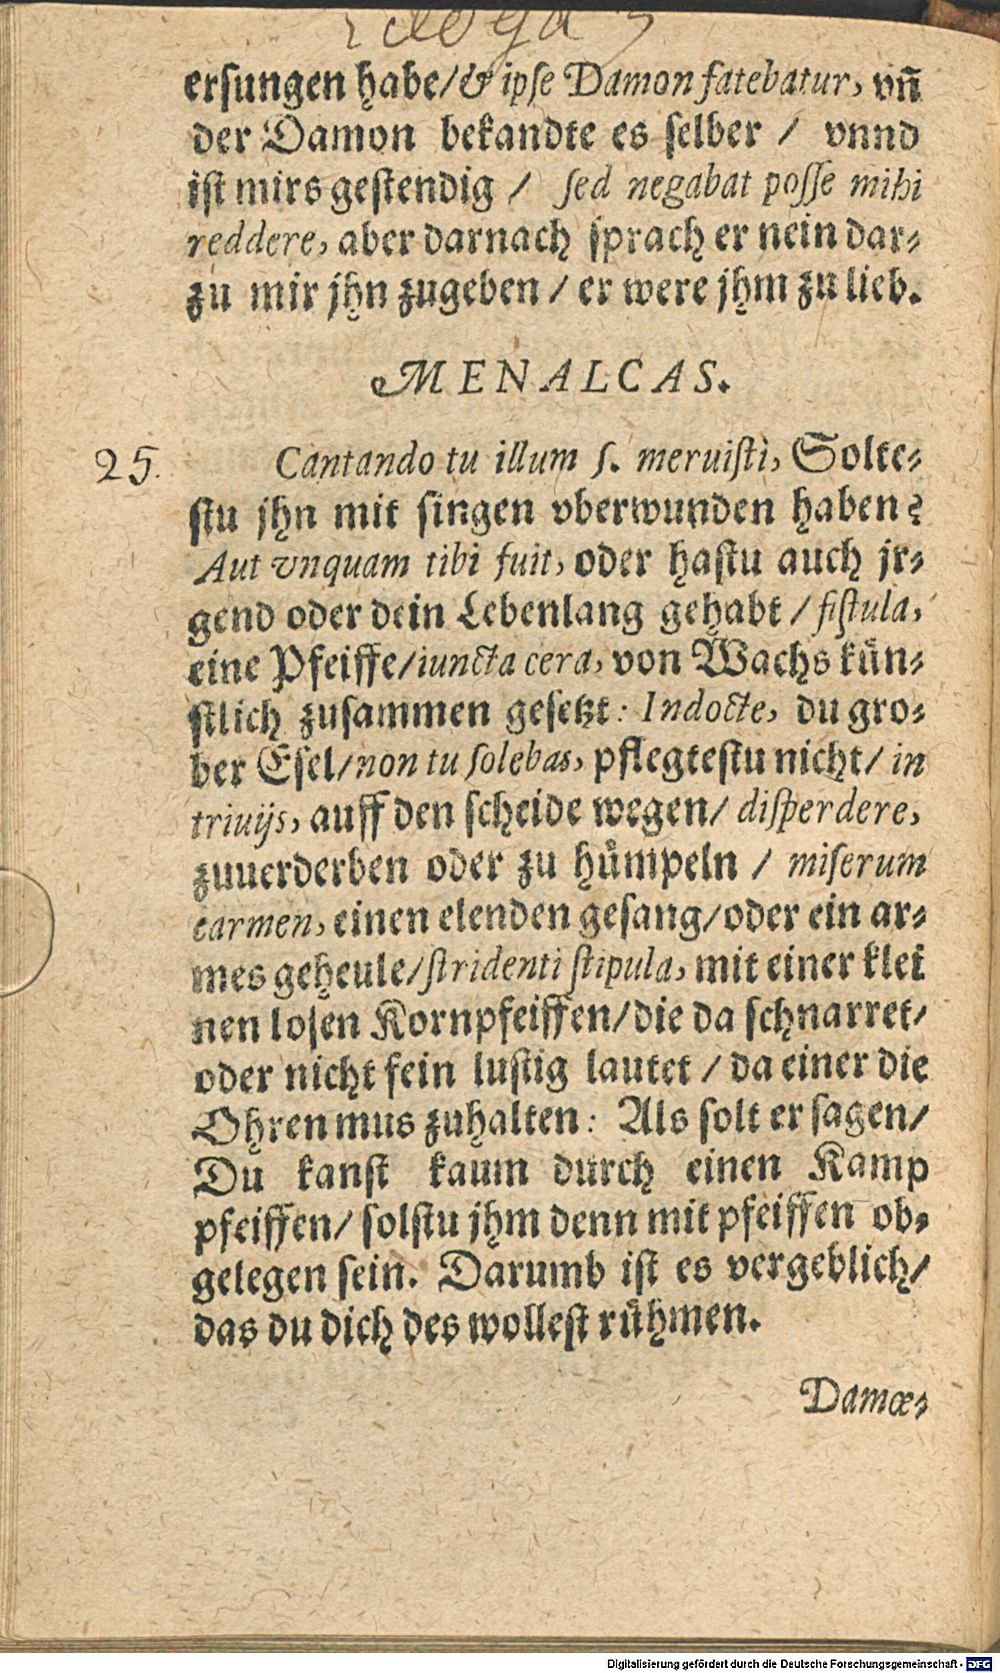 Ecloga 3
ersungen habe/& ipse Damon fatebatur, vn̄
der Damon bekandte es selber / vnnd
ist mirs gestendig / sed negabat posse mihi
reddere, aber darnach sprach er nein dar⸗
zu mir jhn zugeben / er were jhm zu lieb.
MENALCAS.
25.
Cantando tu illum s. meruisti, Solte⸗
stu jhn mit singen vberwunden haben?
Aut vnquam tibi fuit, oder hastu auch jr⸗
gend oder dein Lebenlang gehabt / fistula,
eine Pfeiffe/iuncta cera, von Wachs kün⸗
stlich zusammen gesetzt: Indocte, du gro⸗
ber Esel/non tu solebas, pflegtestu nicht/ in
triuijs, auff den scheide wegen/ disperdere,
zuuerderben oder zu hümpeln / miserum
carmen, einen elenden gesang/oder ein ar⸗
mes geheule/stridenti stipula, mit einer klei
nen losen Kornpfeiffen/die da schnarret/
oder nicht fein lustig lautet / da einer die
Ohren mus zuhalten: Als solt er sagen/
Du kanst kaum durch einen Kamp
pfeiffen/ solstu jhm denn mit pfeiffen ob⸗
gelegen sein. Darumb ist es vergeblich/
das du dich des wollest rühmen.
Damœ⸗
Digitalisierung gefördert durch die Deutsche Forschungsgemeinschaft - DFG